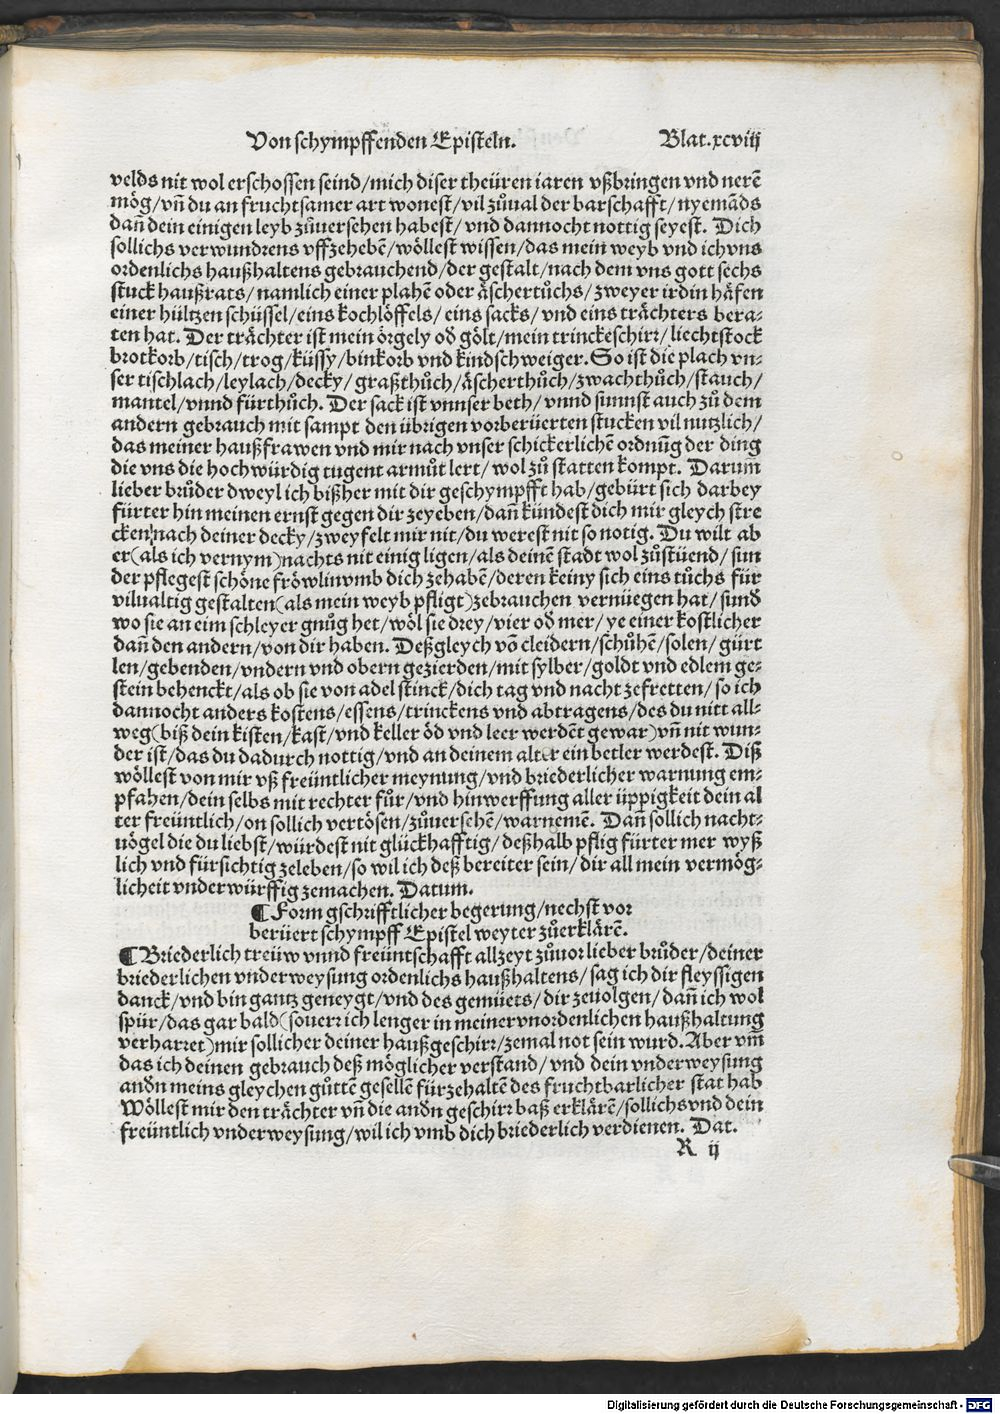 Von schympffenden Episteln. Blat.xcviij
velds nit wol erschossen seind/mich diser theüren iaren vßbringen vnd nerē
mög/vñ du an fruchtsamer art wonest/vil zůual der barschafft/nyemãds
dañ dein einigen leyb zůuersehen habest/vnd dannocht nottig seyest. Dich
sollichs verwundrens vffzehebē/wöllest wissen/das mein weyb vnd ich vns
ordenlichs haußhaltens gebrauchend/der gestalt/nach dem vns gott sechs
stuck haußrats/namlich einer plahē oder äschertůchs/zweyer irdin häfen
einer hültzen schüssel/eins kochlöffels/eins sacks/vnd eins trächters bera⸗
ten hat. Der trächter ist mein örgely od gölt/mein trinckeschirꝛ/liechtstock
brotkorb/tisch/trog/küssy/binkorb vnd kindschweiger. So ist die plach vn⸗
ser tischlach/leylach/decky/graßthůch/äscherthůch/zwachthůch/stauch/
mantel/vnnd fürthůch. Der sack ist vnnser beth/vnnd sunnst auch zů dem
andern gebrauch mit sampt den übrigen vorberüerten stucken vil nutzlich/
das meiner haußfrawen vnd mir nach vnser schickerlichē ordnũg der ding
die vns die hochwürdig tugent armůt lert/wol zů statten kompt. Darum̃
lieber brůder dweyl ich bißher mit dir geschympfft hab/gebürt sich darbey
fürter hin meinen ernst gegen dir zeyeben/dañ kündest dich mir gleych stre
cken nach deiner decky/zweyfelt mir nit/du werest nit so notig. Du wilt ab
er(als ich vernym)nachts nit einig ligen/als deinē stadt wol zůstüend/sun
der pflegest schöne fröwlin vmb dich zehabē/deren keiny sich eins tůchs für
viluältig gestalten(als mein weyb pfligt)zebrauchen vernüegen hat/sund
wo sie an eim schleyer gnůg het/wöl sie drey/vier od mer/ye einer kostlicher
dañ den andern/von dir haben. Deßgleych võ cleidern/schůhē/solen/gürt
len/gebenden/vndern vnd obern gezierden/mit sylber/goldt vnd edlem ge⸗
stein behenckt/als ob sie von adel stinck/dich tag vnd nacht zefretten/so ich
dannocht anders kostens/essens/trinckens vnd abtragens/des du nitt all⸗
weg(biß dein kisten/kast/vnd keller öd vnd leer werdēt gewar)vñ nit wun⸗
der ist/das du dadurch nottig/vnd an deinem alter ein betler werdest. Diß
wöllest von mir vß freüntlicher meynung/vnd briederlicher warnung em⸗
pfahen/dein selbs mit rechter fůr/vnd hinwerffung aller üppigkeit dein al
ter freüntlich/on sollich vertösen/zůuersehē/warnemē. Dañ sollich nacht⸗
uögel die du liebst/würdest nit glückhafftig/deßhalb pflig fürter mer wyß
lich vnd fürsichtig zeleben/so wil ich deß bereiter sein/dir all mein vermög⸗
licheit vnderwürffig zemachen. Datum.
¶ Form gschrifftlicher begerung/nechst vor
berüert schympff Epistel weyter zůerklärē.
¶ Briederlich treüw vnnd freüntschafft allzeyt zůuor lieber brůder/deiner
briederlichen vnderweysung ordenlichs haußhaltens/sag ich dir fleyssigen
danck/vnd bin gantz geneygt/vnd des gemüets/dir zeuolgen/dañ ich wol
spür/das gar bald(souerꝛ ich lenger in meiner vnordenlichen haußhaltung
verharret)mir sollicher deiner haußgeschirꝛ/zemal not sein wurd. Aber vm̃
das ich deinen gebrauch deß möglicher verstand/vnd dein vnderweysung
andn meins gleychen gůttē gesellē fürzehaltē des fruchtbarlicher stat hab
Wöllest mir den trächter vñ die andn geschirꝛ baß erklärē/sollichs vnd dein
freüntlich vnderweysung/wil ich vmb dich briederlich verdienen. Dat.
R ij
Digitalisierung gefördert durch die Deutsche Forschungsgemeinschaft - DFG